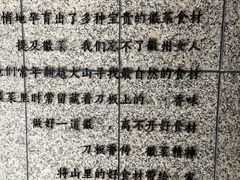 悄地孕育出了多种宝贵的徽菜食材
提及徽菜 我们忘不了徽州女人
们常年翻越大山寻找最自然的食材
菜里时常留藏着刀板上的 香味
做好一道徽 离不开好食材
刀板香传 徽菜精神
将山里的好食材带给